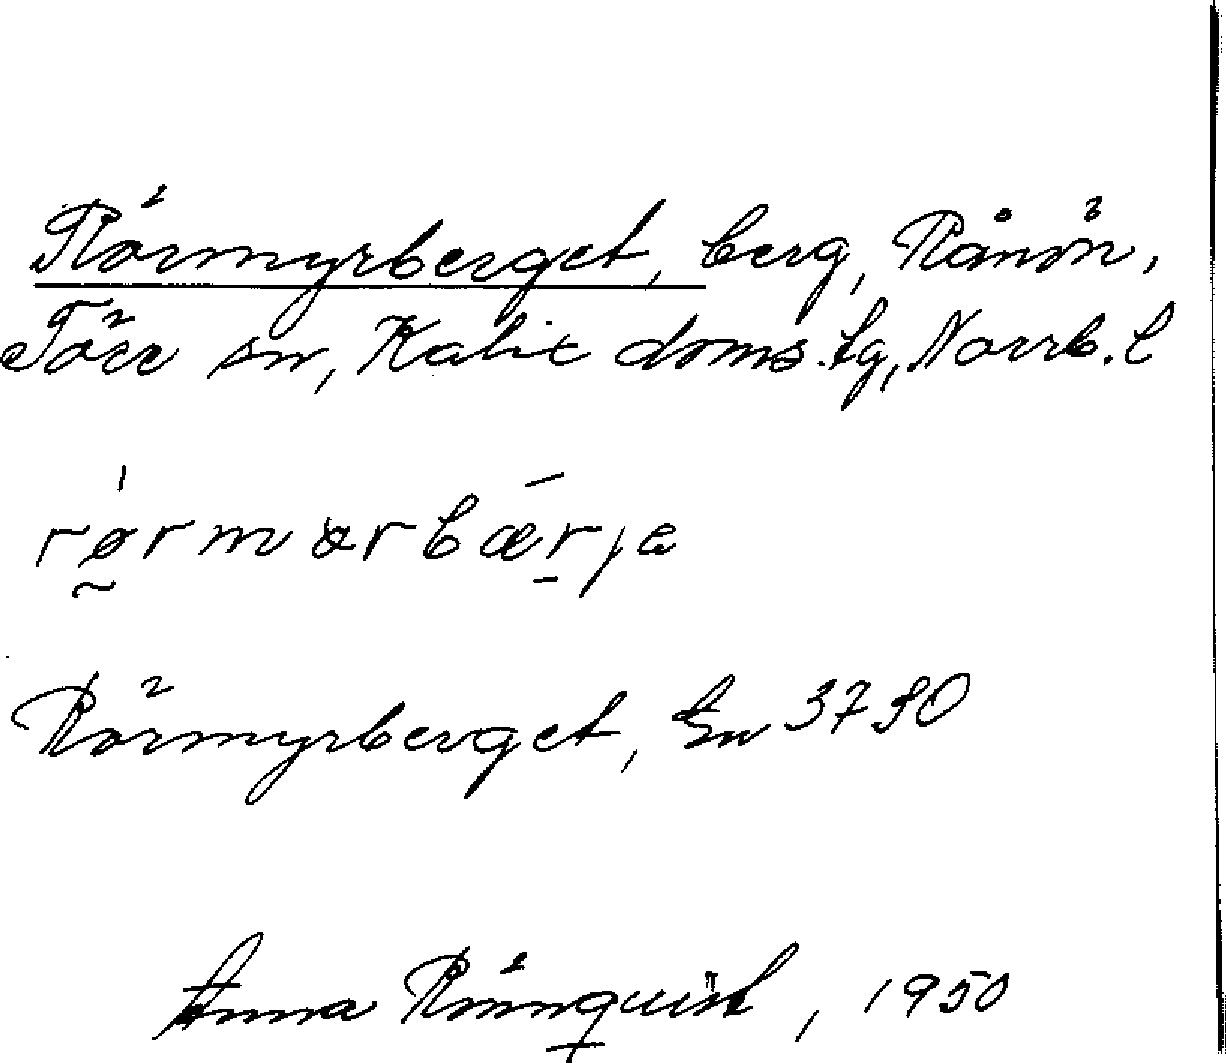 Rörmyrberget, berg, Rånön,
Töre sn, Kalix doms.tg, Norrb. l
rørmɯrbærja
Rörmyrberget, En 3790
Anna Rönnquist, 1950